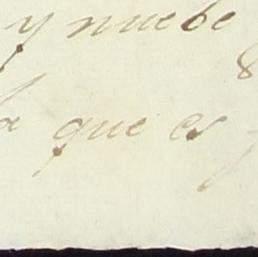 y nuebe
que es